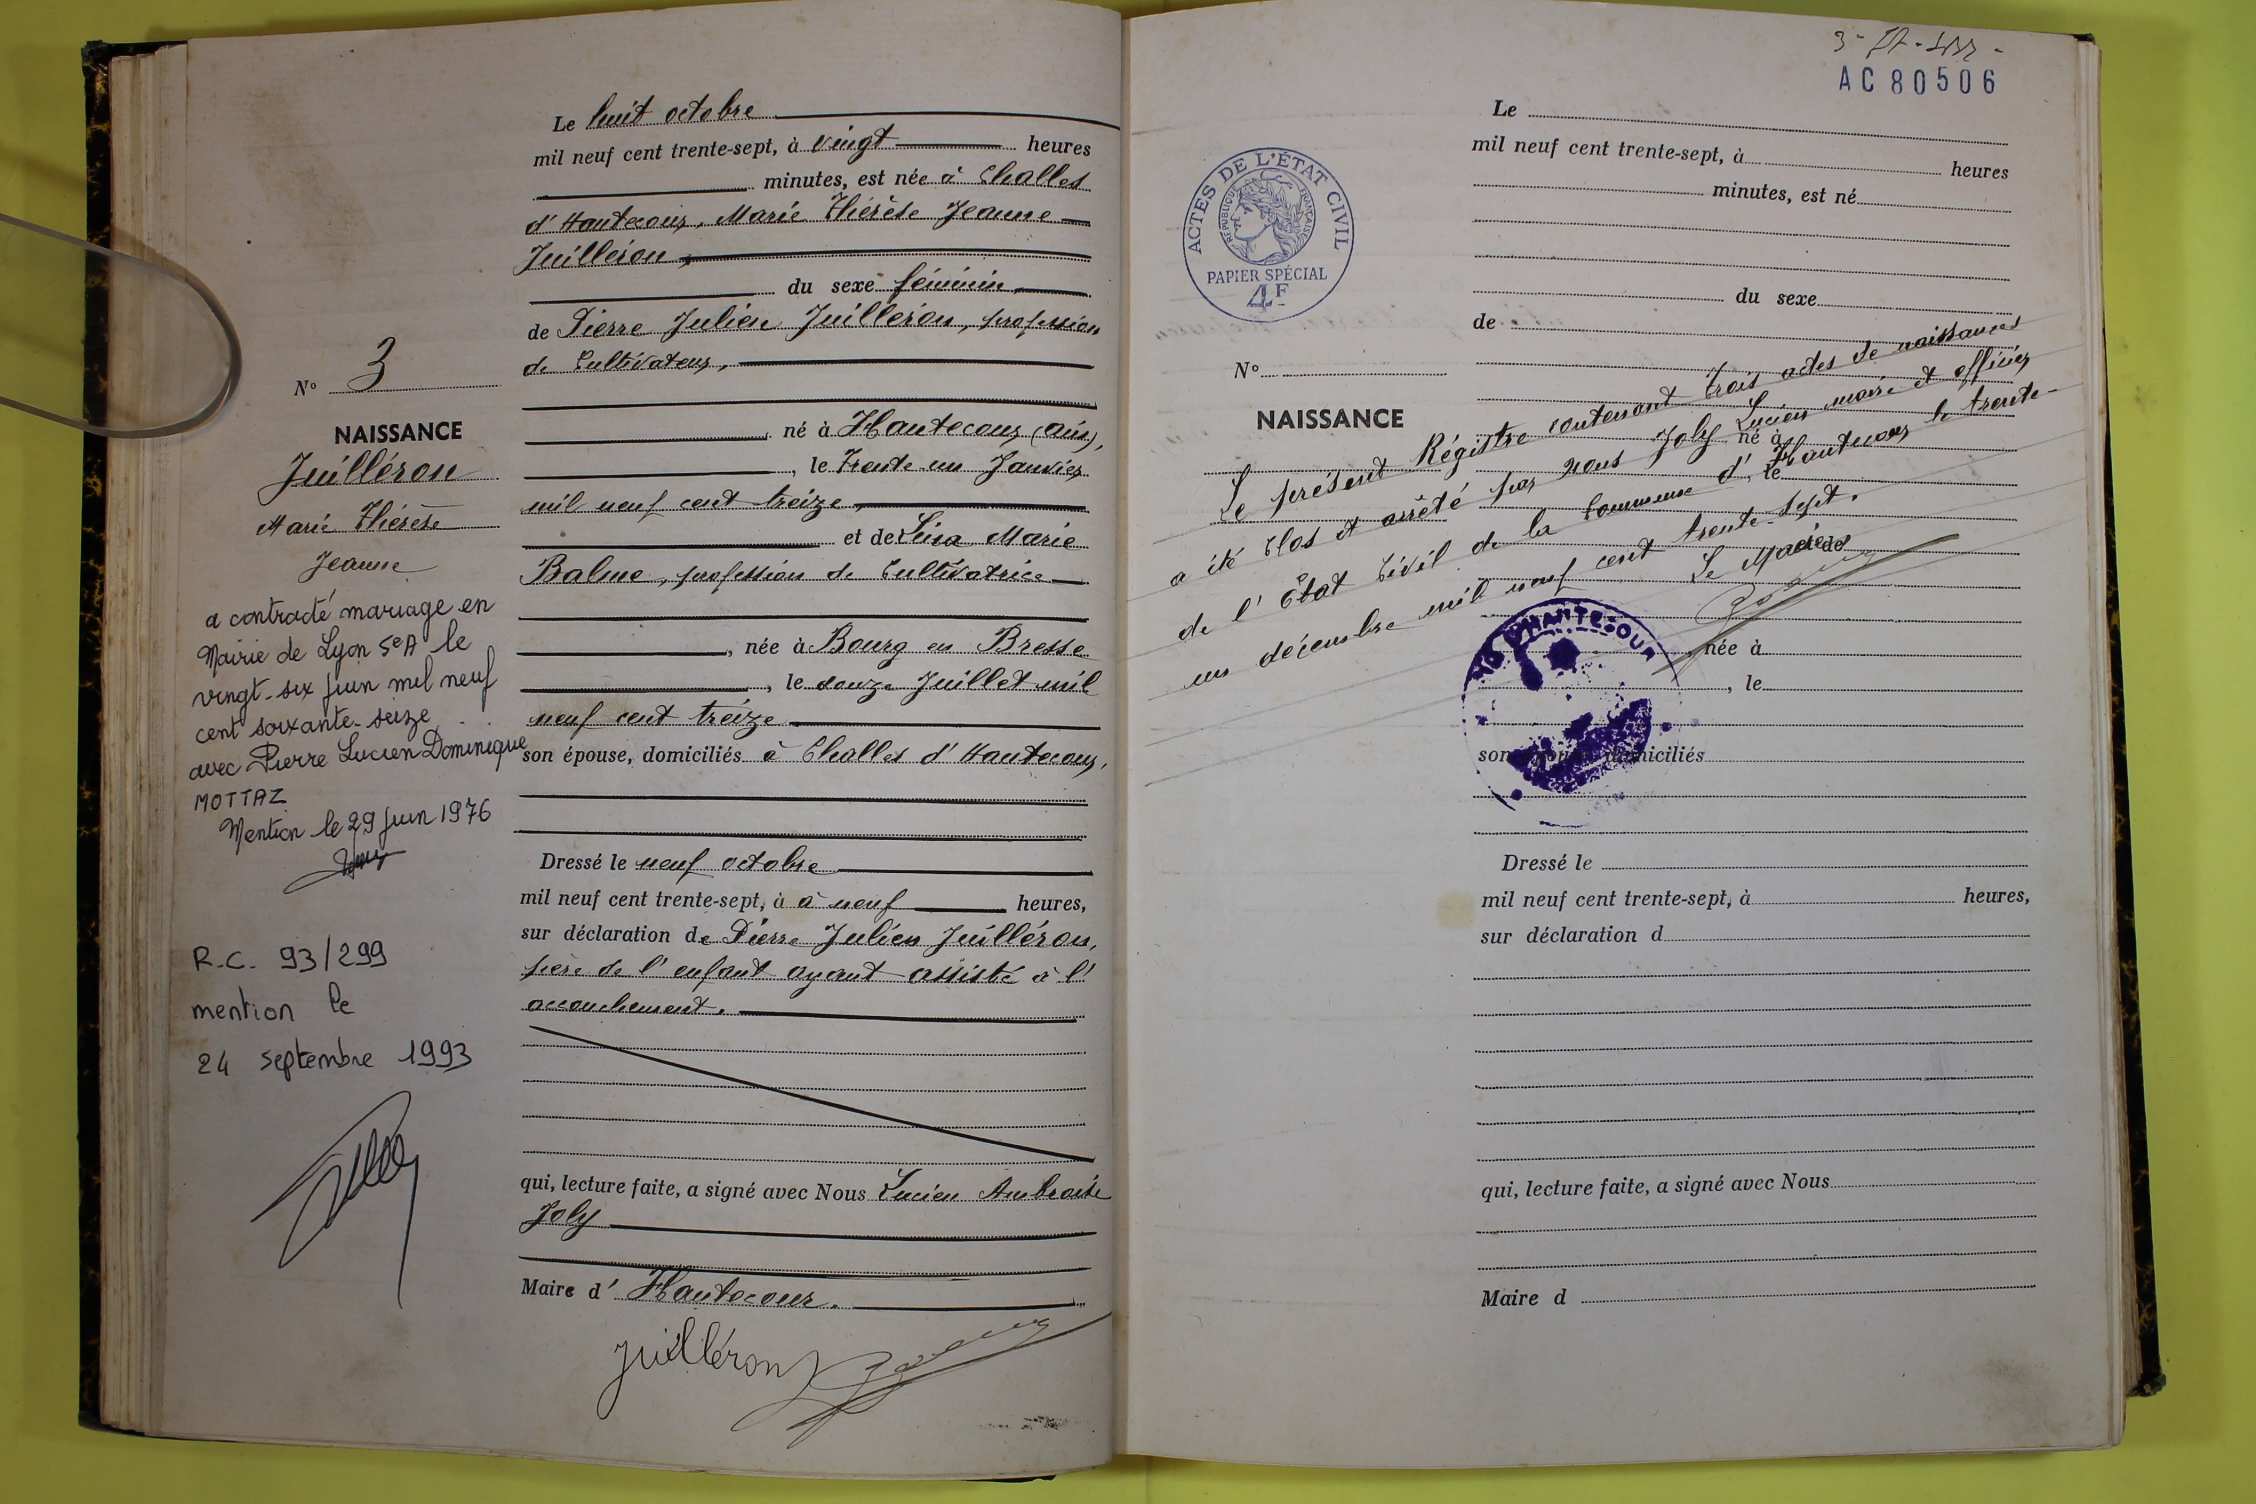 Le huit octobre
mil neuf cent trente-sept, à vingt heures
minutes, est née à Challes
d'Hautecour, Marie Thérèse Jeanne
Juilléron,
du sexe féminin,
de Pierre Julien Juilléron, profession
de Cultivateur,
né à Hautecour (Ain),
, le Trente-un Janvier
mil neuf cent treize,
et de Lina Marie
Balme, profession de Cultivatrice
, née à Bourg en Bresse
, le douze Juillet mil
neuf cent treize
son épouse, domiciliés à Challes d'Hautecour,
Dressé le neuf octobre
mil neuf cent trente-sept, à à neuf heures,
sur déclaration de Pierre Julien Juilléron,
père de l'enfant ayant assisté à l'
accouchement.
qui, lecture faite, a signé avec Nous Lucien Ambroise
Joly
Maire d'Hautecour.
Juilléron
N° 3
NAISSANCE
Juilléron
Marie Thérèse
Jeanne
a contracté mariage en
Mairie de Lyon 5eA le
vingt-six juin mil neuf
cent soixante-seize
avec Pierre Lucien Dominique
MOTTAZ
Mention le 29 juin 1976
R.C. 93/299
mention le
24 septembre 1993
AC 80506
ACTES DE L'ÉTAT CIVIL
RÉPUBLIQUE FRANÇAISE
PAPIER SPÉCIAL
4F
N°
NAISSANCE
Le
mil neuf cent trente-sept, à heures
minutes, est né
du sexe
de
né à
, le
et de
, née à
, le
son épouse, domiciliés
Dressé le
mil neuf cent trente-sept, à heures,
sur déclaration d
qui, lecture faite, a signé avec Nous
Maire d
Le présent Régistre contenant trois actes de naissances
a été clos et arrêté par nous Joly Lucien maire et officier
de l'État Civil de la Commune d'Hautecour le trente-
un décembre mil neuf cent trente-sept.
Le Maire
D'HANTECOUR